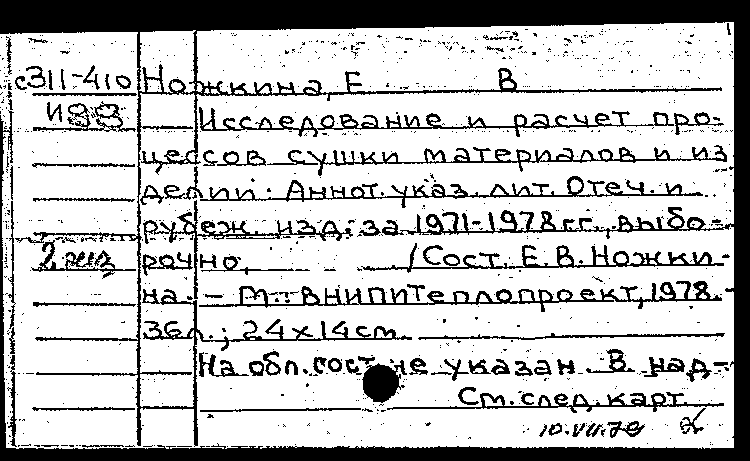 с311-410 Ножкина, Е В
И88 Исследование и расчет про-
цессов сушки материалов и из
делий. Аннот. указ. лит. Отеч. и
рубеж. изд. за 1971-1978 гг., выбо-
2 экз рочно, /Сост. Е.В. Ножки-
на. - М.: ВНИПИТеплопроект, 1978. -
36л.; 24х14см.
На обл. сост. не указан. В над-
См. след. карт
10.VII.79